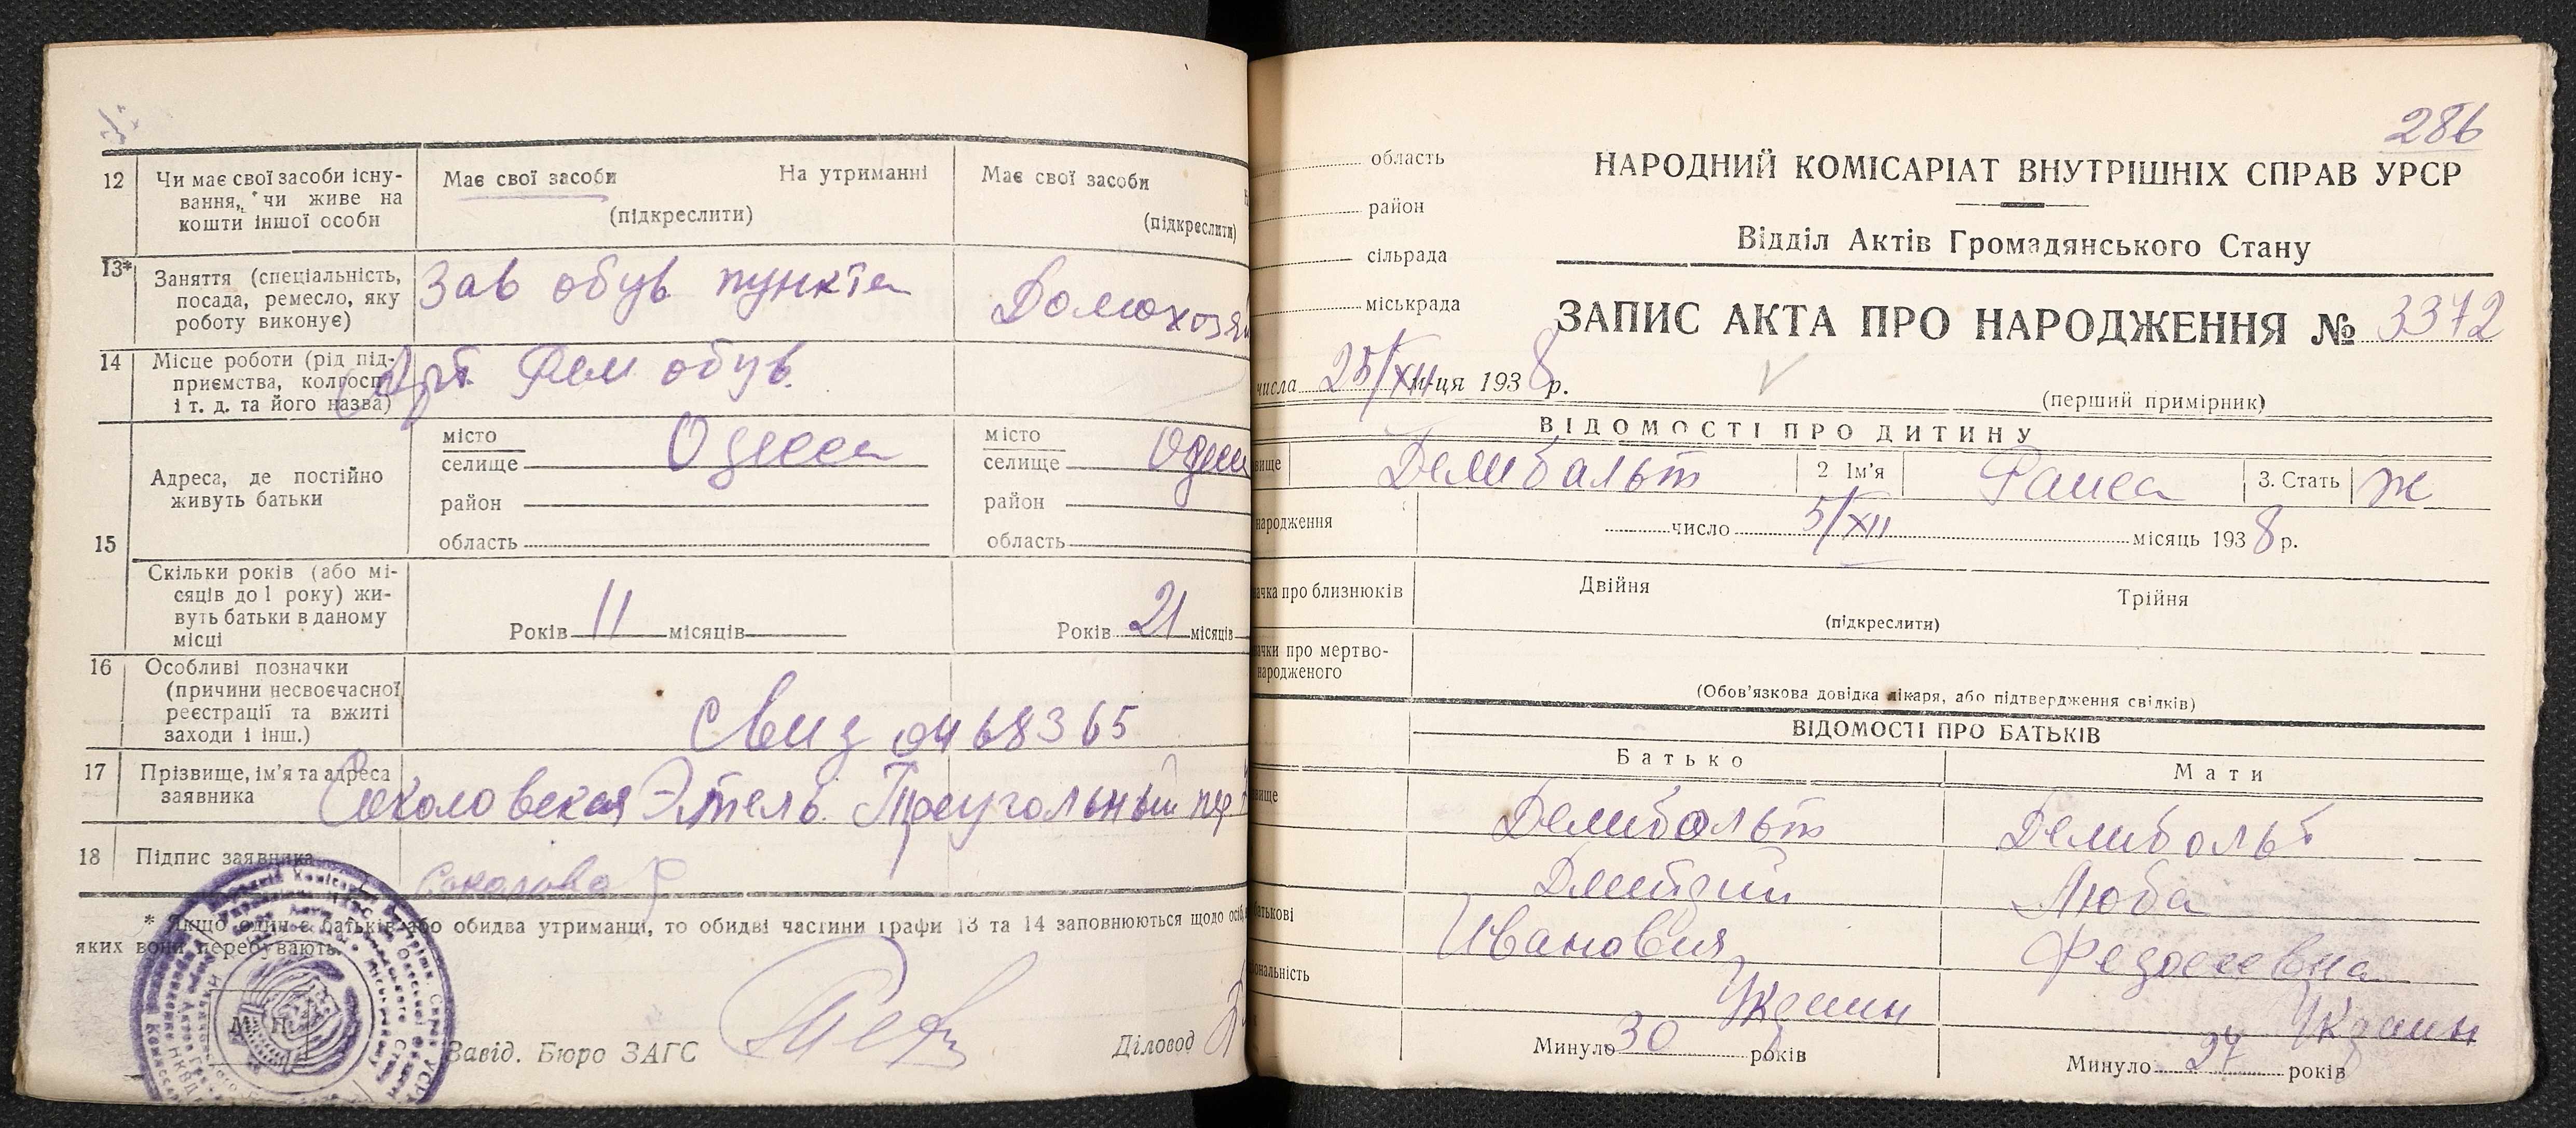 12 Чи має свої засоби існу-
вання, чи живе на
кошти іншої особи
Має свої засоби На утриманні
(підкреслити)
Має свої засоби
(підкреслити)
13* Заняття (спеціальність,
посада, ремесло, яку
роботу виконує)
Зав обув пункта
Домохозяй
14 Місце роботи (рід під-
приємства, колгосп
і т. д. та його назва)
Арт. Рем обув.
15 Адреса, де постійно
живуть батьки
місто
селище Одесса
район
область
місто
селище Одесс
район
область
Скільки років (або мі-
сяців до 1 року) жи-
вуть батьки в даному
місці
Років 11 місяців
Років 21 місяців
16 Особливі позначки
(причини несвоєчасної
реєстрації та вжиті
заходи і інш.)
0468365
17 Прізвище, ім'я та адреса
заявника
Соколовская Этель Треугольный пер
18 Підпис заявника
* Якщо один є батьків або обидва утриманці, то обидві частини графи 13 та 14 заповнюються щодо осіб,
яких вони перебувають.
М. П.
Завід. Бюро ЗАГС
Діловод
286
область
район
сільрада
міськрада
НАРОДНИЙ КОМІСАРІАТ ВНУТРІШНІХ СПРАВ УРСР
Відділ Актів Громадянського Стану
ЗАПИС АКТА ПРО НАРОДЖЕННЯ № 3372
числа 25/XII м-ця 1938 р.
(перший примірник)
ВІДОМОСТІ ПРО ДИТИНУ
вище Делибальт 2 Ім'я Раиса 3. Стать ж
народження
число 5/XII місяць 1938 р.
ачка про близнюків
Двійня Трійня
(підкреслити)
ачки про мертво-
народженого
(Обов'язкова довідка лікаря, або підтвердження свідків)
ВІДОМОСТІ ПРО БАТЬКІВ
Батько Мати
вище Делибольт Делибольт
Дмитрий Люба
батькові Иванович Федосеевна
ональність Украин Украин
Минуло 30 років
Минуло 27 років